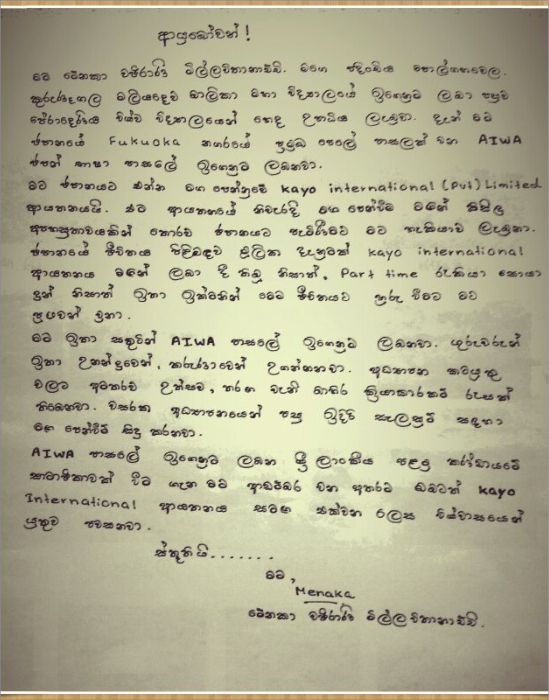 ආයුබෝවන් !
මම මේනකා විජිරාවි මිල්ලවිතානාච්චි. මගෙ පදිංචිය පොල්ගහවෙල.
කුරුණෑගල මලියදේව බාලිකා මහා විද්‍යාලයේ ඉගෙනුම ලබා පසුව
පේරාදෙණිය විශ්ව විද්‍යාලයෙන් හෙද උපාධිය ලැබුවා. දැන් මම
ජපානයේ Fukuoka නගරයේ ප්‍රමුඛ පෙළේ පාසලක් වන AIWA
ජපන් භාෂා පාසලේ ඉගෙනුම ලබනවා.
මම ජපානයට එන්න මග පෙන්නුවේ kayo international (Pvt) Limited
ආයතනයයි. එම ආයතනයේ නිවැරදි මග පෙන්වීම මතේ කිසිදු
අපහසුතාවයකින් තොරව ජපානයට පැමිණීමට මට හැකියාව ලැබුනා.
ජපානයේ ජීවිතය පිළිබඳව මූලික දැනුමක් kayo international
ආයතනය මගින් ලබා දී තිබූ නිසාත්, Part time රැකියා සොයා
දුන් නිසාත් ඉතා ඉක්මනින් මෙම ජීවිතයට හුරු වීමට මට
පුළුවන් වුනා.
මම ඉතා සතුටින් AIWA පාසලේ ඉගෙනුම ලබනවා. ගුරුවරුන්
ඉතා උනන්දුවෙන්, කරුණාවෙන් උගන්නනවා. අධ්‍යාපන කටයුතු
වලට අමතරව උත්සව, තරඟ වැනි බාහිර ක්‍රියාකාරකම් රැසක්
තියෙනවා. වසරක අධ්‍යාපනයෙන් පසු ඉදිරි සැලසුම් සඳහා
මග පෙන්වීම් සිදු කරනවා.
AIWA පාසලේ ඉගෙනුම ලබන ශ්‍රී ලාංකීය පළමු කණ්ඩායමේ
සාමාජිකාවක් වීම ගැන මම ආඩම්බර වන අතරම ඔබටත් kayo
International ආයතනය සමග එක්වන ලෙස විශ්වාසයෙන්
යුතුව පවසනවා.
ස්තූතියි.......
මම,
Menaka
මේනකා විජිරාවි මිල්ලවිතානාච්චි.